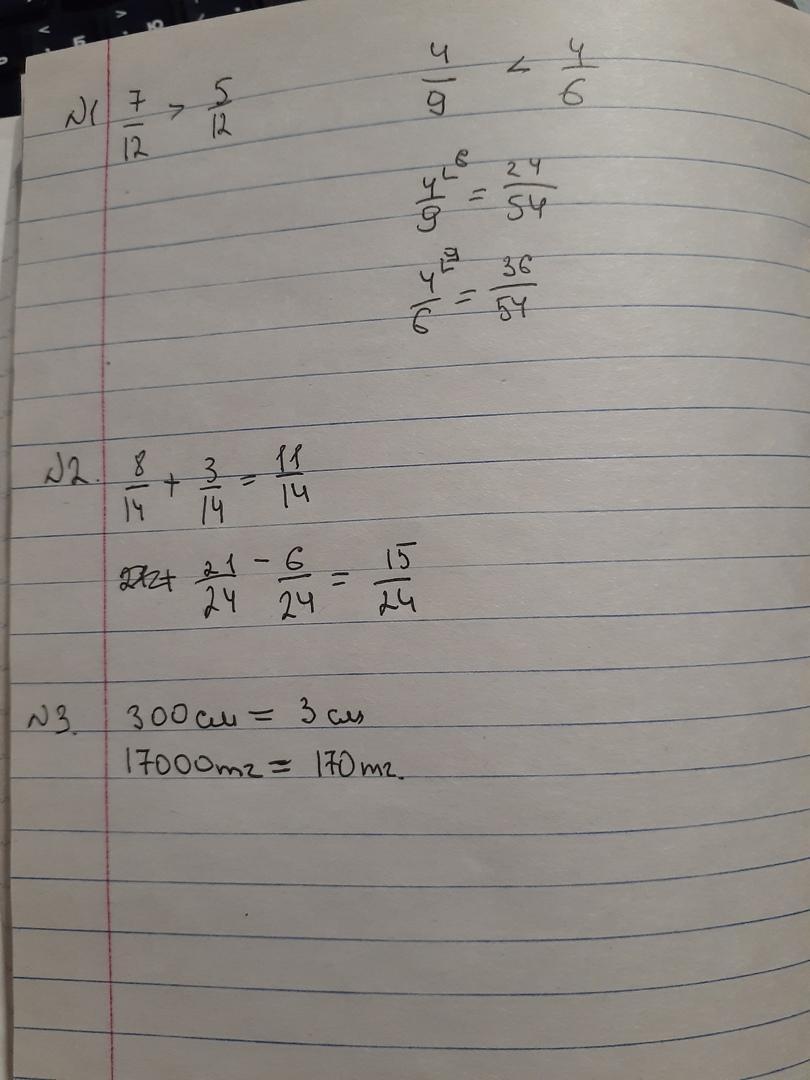 N1 7/12 > 5/12    4/9 < 4/6
4/9 ⌞6 = 24/54
4/6 ⌞9 = 36/54
N2. 8/14 + 3/14 = 11/14
21/24 - 6/24 = 15/24
N3. 300 см = 3 см
17000тг = 170тг.